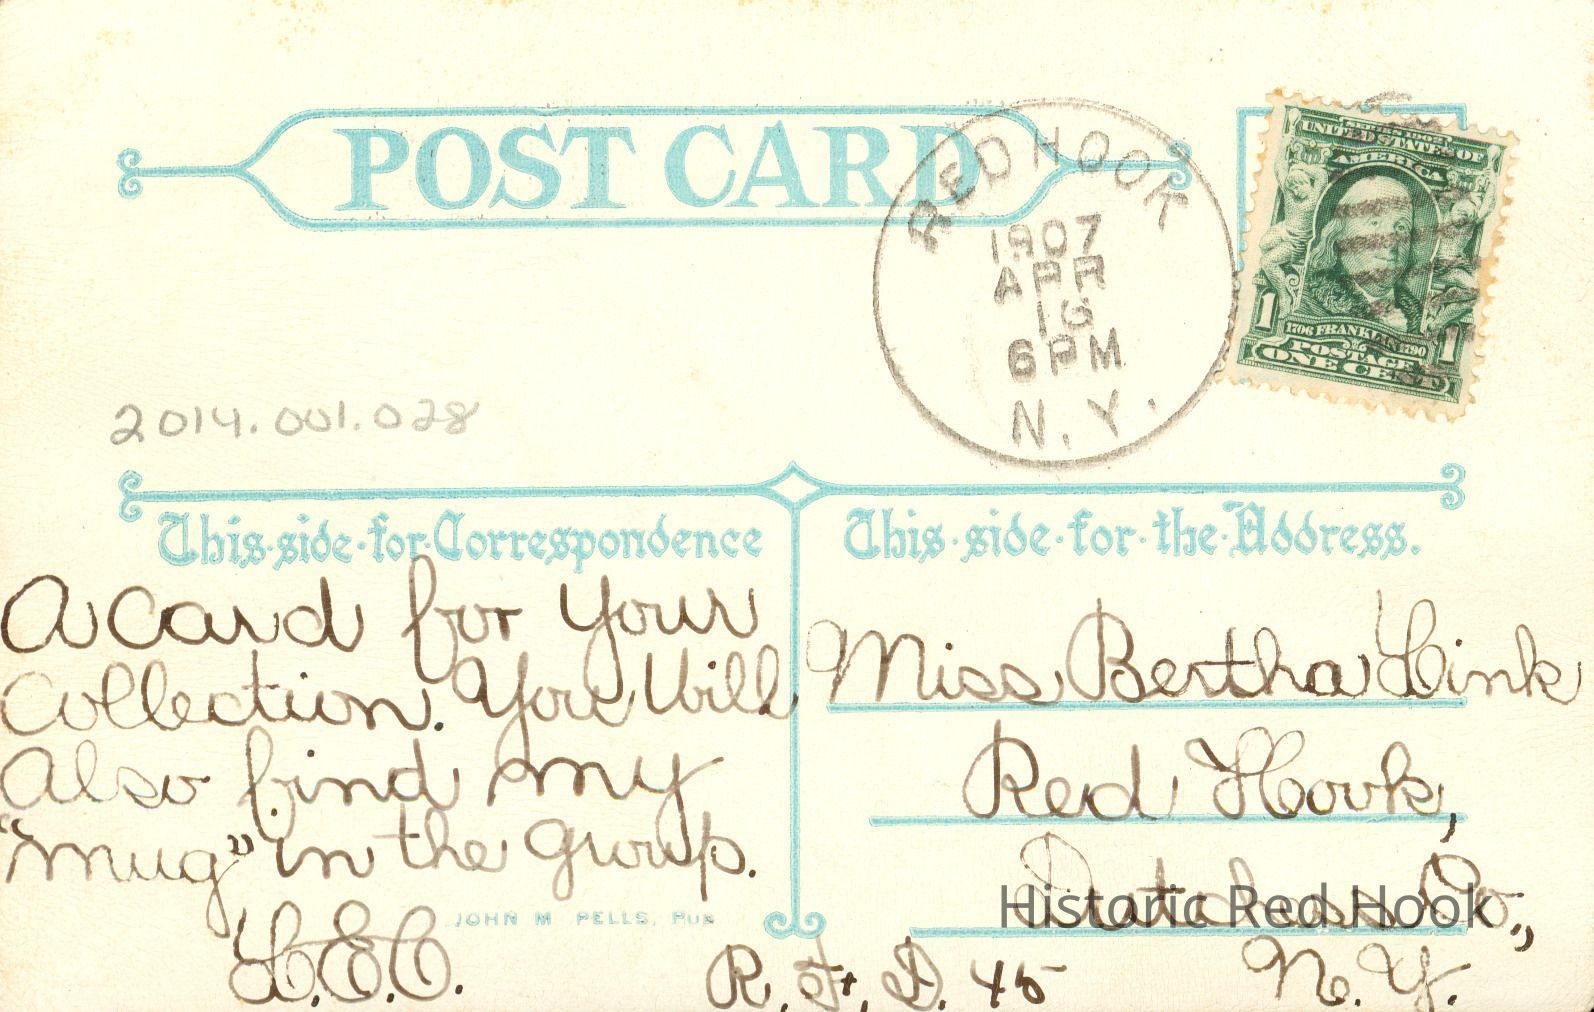 POST CARD
RED HOOK
1907
APR
16
6 PM
N.Y.
SERIES 1902
UNITED STATES OF
AMERICA
1706 FRANKLIN 1790
POSTAGE
1 ONE CENT 1
2014.001.028
This·side·for·Correspondence
This·side·for·the·Address.
A card for your
Collection. You will
Also find my
"mug" in the group.
JOHN M PELLS, PUB
Miss Bertha Link
Red Hook,
Dutchess Co.,
Historic Red Hook
R.F.D. 45
N.Y.